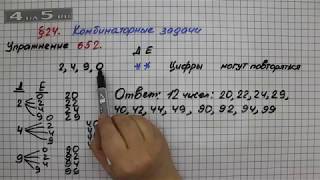 4 на 5.ru
§24. Комбинаторные задачи
Упражнение 652.
Д Е
2, 4, 9, 0 ** Цифры могут повторяться
Д Е
2 0 20
2 22
4 24
9 29
Ответ: 12 чисел: 20, 22, 24, 29,
40, 42, 44, 49, 90, 92, 94, 99
4 0
2
4
9
9 0 90
2 92
4 94
9 99